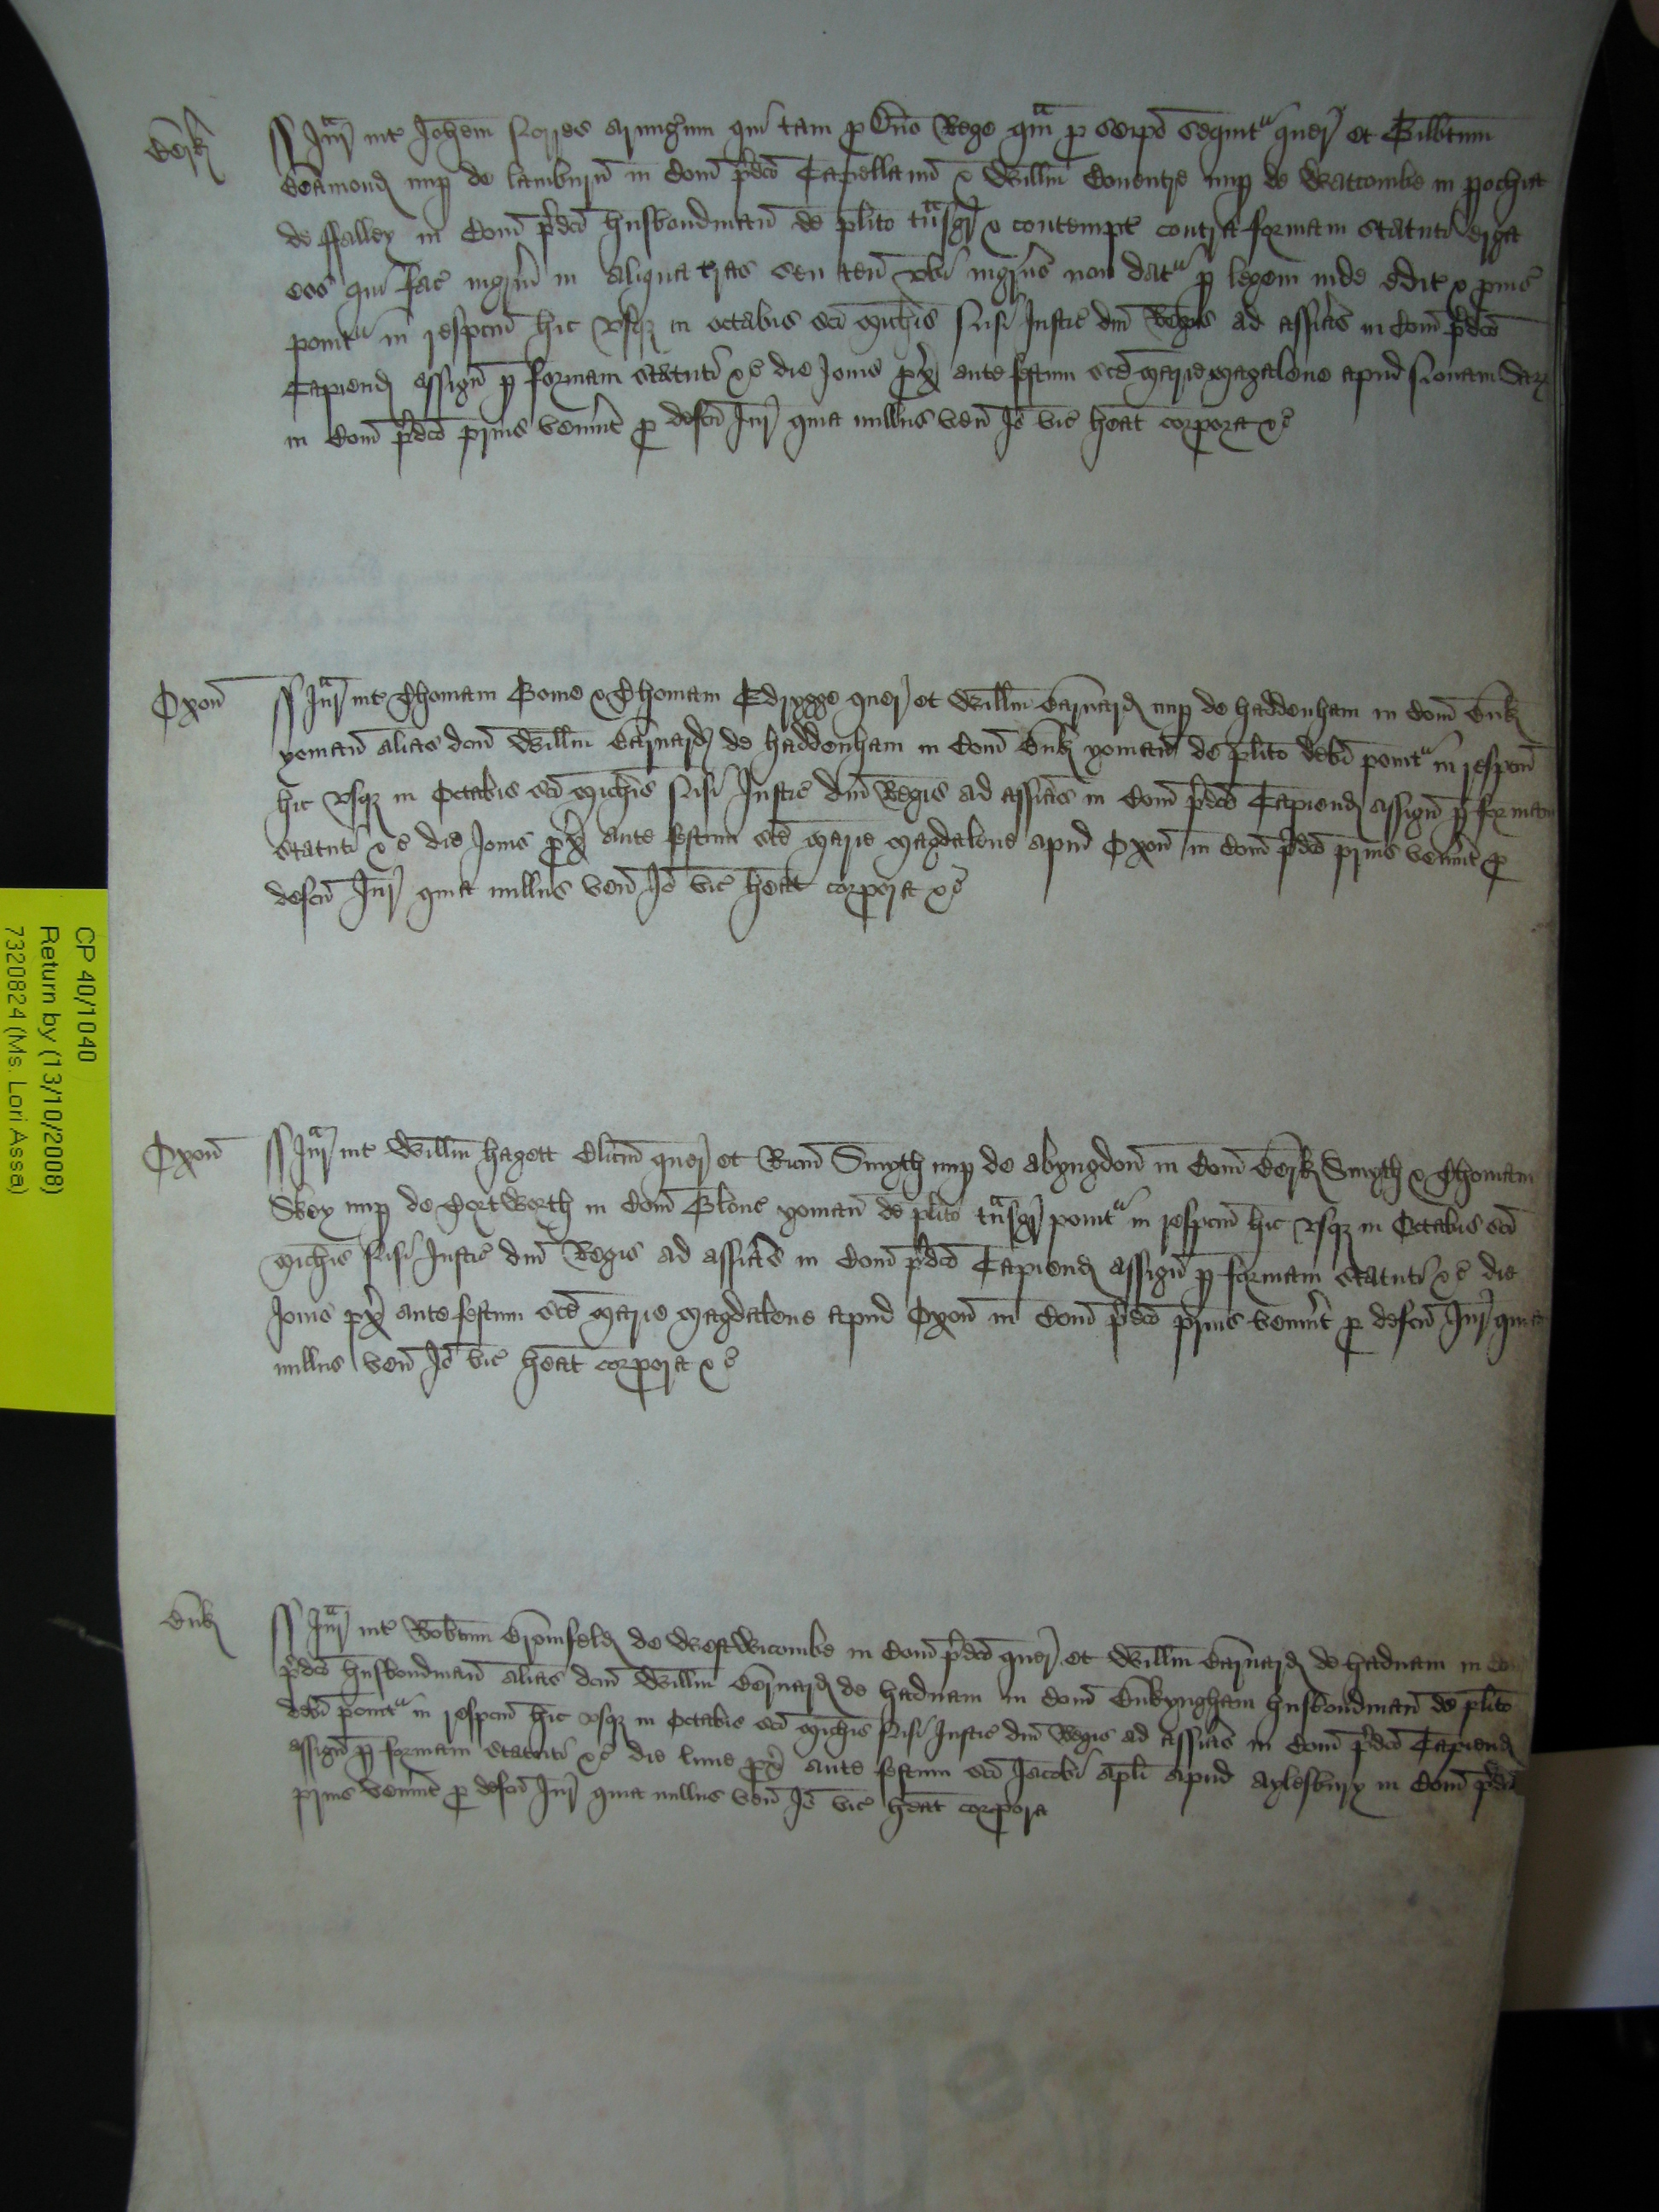 Berk
Jur int Johem Norres armigum qui tam p Dno Rege qm p seipo sequit quer et Gilbtum
nup de Lamburn in Com pdco Capellanu & Willm Coventre nup de Watcombe in pochia
de ffalley in Com pdco husbondman de plito tnsgr & contempt contra formam statuti erga
eos qui fac ingrm in aliqua tras seu ten ubi ingrus non dat p legem inde edit & pus
ponit in respcm hic usq in octabis sci Michis Nisi Justic dni Regis ad assias in Com pdco
Capiend assign p formam statuti &c die Jovis px ante festum sce Marie Magdalene apud
in Com pdco prius venint p defcu Jur quia nullus ven Io vic heat corpora &c
Oxon
Jur int Thomam Bome & Thomam Edrygge quer et Willm Barnard nup de Haddenham in Com Buk
yoman alias dcm Willm Barnard de Haddenham in Com Buk yoman de plito debi ponit in respcm
hic usq in Octabis sci Michis Nisi Justic dni Regis ad assias in Com pdco Capiend assign p formam
statuti &c die Jovis px ante festum sce Marie Magdalene apud Oxon in Com pdco prius venint p
defcu Jur quia nullus ven Io vic heat corpora &c
Oxon
Jur int Willm Hagett Clicum quer et Ricm Smyth nup de Abyngdon in Com Berk Smyth & Thomam
nup de Tortworth in Com Glouc yoman de plito tnsgr ponit in respcm hic usq in Octabis sci
Michis Nisi Justic dni Regis ad assias in Com pdco Capiend assign p formam statuti &c die
Jovis px ante festum sce Marie Magdalene apud Oxon in Com pdco prius venint p defcu Jur quia
nullus ven Io vic heat corpora &c
Buk
Jur int Robtum Bromfeld de Westwicombe in Com pdco quer et Willm Barnard de Hadnam in Com
pdco husbondman alias dcm Willm Bernard de Hadnam in Com Bukyngham husbondman de plito
debi ponit in respcm hic usq in Octabis sci Michis Nisi Justic dni Regis ad assias in Com pdco Capiend
assign p formam statuti &c die lune px ante festum sci Jacobi apli apud Aylesbury in Com pdco
prius venint p defcu Jur quia nullus ven Io vic heat corpora
CP 40/1040
Return by (13/10/2008)
7320824 (Ms. Lori Assa)